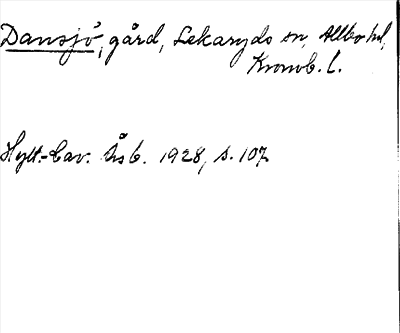 Dansjö, gård, Lekaryds sn, Allbo hd,
Kronob. l.
Hylt.-Cav. Åsb. 1928, s. 107.